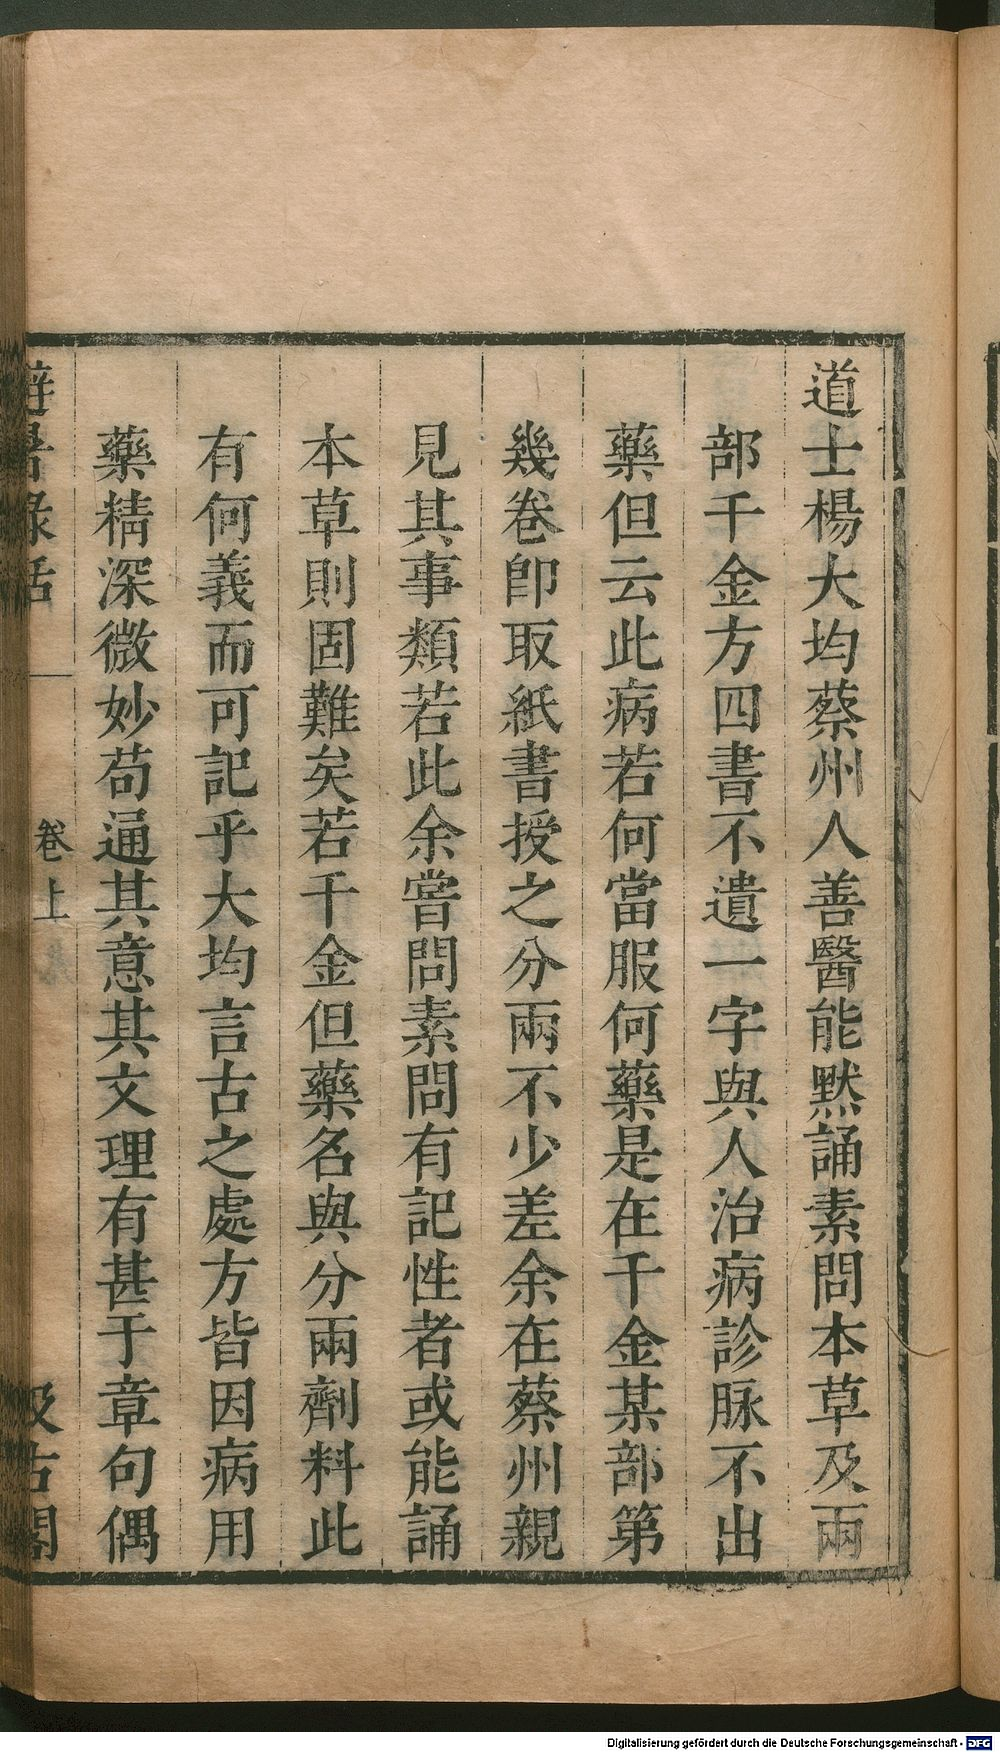 道士楊大均蔡州人善醫能默誦素問本草及兩
部千金方四書不遺一字與人治病診脉不出
藥但云此病若何當服何藥是在千金某部第
幾卷卽取紙書授之分兩不少差余在蔡州親
見其事類若此余嘗問素問有記性者或能誦
本草則固難矣若千金但藥名與分兩劑料此
有何義而可記乎大均言古之處方皆因病用
藥精深微妙苟通其意其文理有甚于章句偶
避暑錄話
卷上
汲古閣
Digitalisierung gefördert durch die Deutsche Forschungsgemeinschaft - DFG